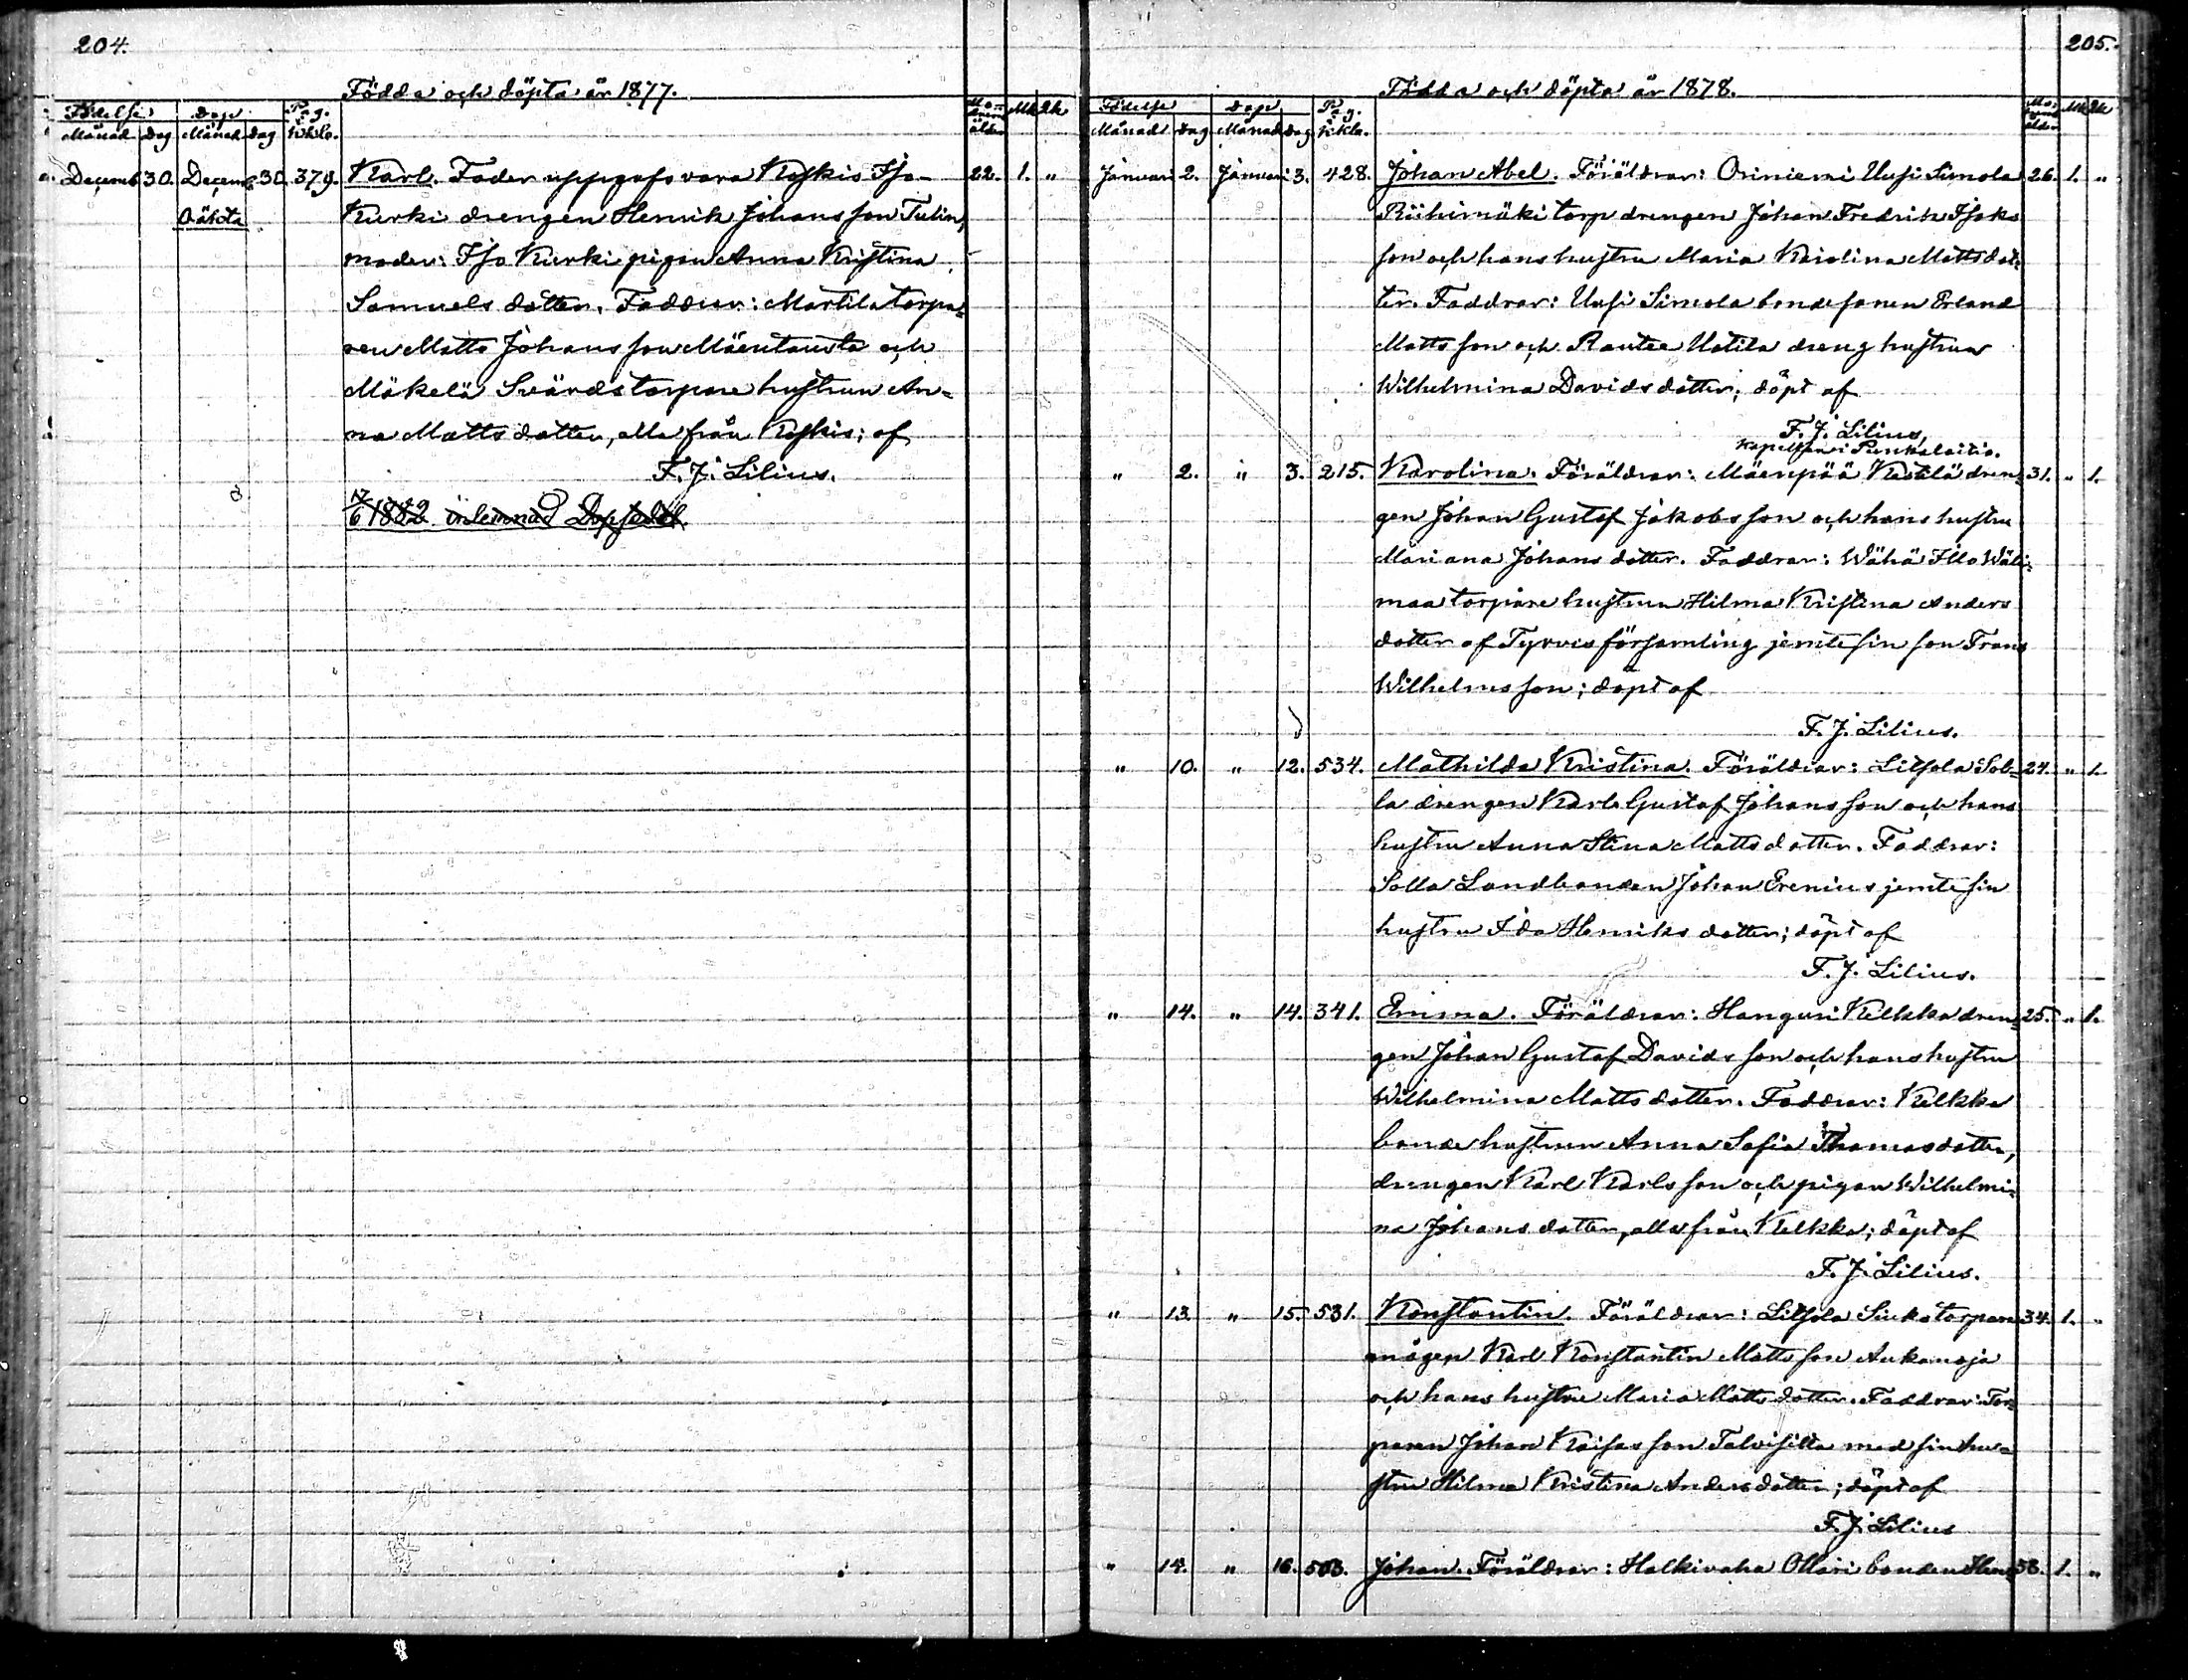 204.
Födda och döpta år 1877.
Födelse Dop Pag. Moderns ålder Mk Qk
Månad Dag Månad Dag i Kkb.
Decemb. 30. Decemb. 30. 379. Karl. Fader uppgafs vara Koskis Iso- 22. 1. "
Oäkta Kurki drengen Henrik Johansson Tulin,
moder: Iso Kurki pigan Anna Kristina
Samuels dotter. Faddrar: Martila torpa-
ren Matts Johansson Mäentausta och
Mäkelä Svärds torpare hustrun An-
na Matts dotter, alla från Koskis; af
F. J. Lilius.
7/6 1882 inlemnad Dopsedel.
205.
Födda och döpta år 1878.
Födelse Dop Pag. Moderns ålder Mk Qk
Månad Dag Månad Dag i Kkb.
Januari 2. Januari 3. 428. Johan Abel. Föräldrar: Oriniemi Uusi Simola 26. 1. "
Riihimäki torp drengen Johan Fredrik Isaks
son och hans hustru Maria Karolina Mattsdot-
ter. Faddrar: Uusi Simola bondesonen Erland
Matts son och Rautee Uotila dreng hustrun
Wilhelmina Davids dotter; döpt af
F. J. Lilius,
Kapellan i Punkalaitio.
" 2. " 3. 215. Karolina. Föräldrar: Mäenpää Kestilä dren- 31. " 1.
gen Johan Gustaf Jakobs son och hans hustru
Mariana Johans dotter. Faddrar: Wähä Illo Wäli-
maa torpare hustrun Hilma Kristina Anders
dotter af Tyrvis församling jemte sin son Frans
Wilhelms son; döpt af
F. J. Lilius.
" 10. " 12. 534. Mathilda Kristina. Föräldrar: Liitsola Sol- 24. " 1.
la drengen Karl Gustaf Johans son och hans
hustru Anna Stina Matts dotter. Faddrar:
Solla Landbonden Johan Erenius jemte sin
hustru Ida Henriks dotter; döpt af
F. J. Lilius.
" 14. " 14. 341. Emma. Föräldrar: Hanguri Kilkka dren- 25. " 1.
gen Johan Gustaf Davids son och hans hustru
Wilhelmina Matts dotter. Faddrar: Kilkka
bonde hustrun Anna Sofia Thomasdotter,
drengen Karl Karls son och pigan Wilhelmi-
na Johans dotter, alla från Kilkka; döpt af
F. J. Lilius.
" 13. " 15. 531. Konstantin. Föräldrar: Liitsola Siuko torpare 34. 1. "
mågen Karl Konstantin Matts son Aukanoja
och hans hustru Maria Matts dotter. Faddrar: Tor-
paren Johan Kaisas son Talvisilta med sin hu-
stru Hilma Kristina Anders dotter; döpt af
F. J. Lilius
" 14. " 16. 503. Johan. Föräldrar: Halkivaha Ollari bonden Hen- 38. 1. "